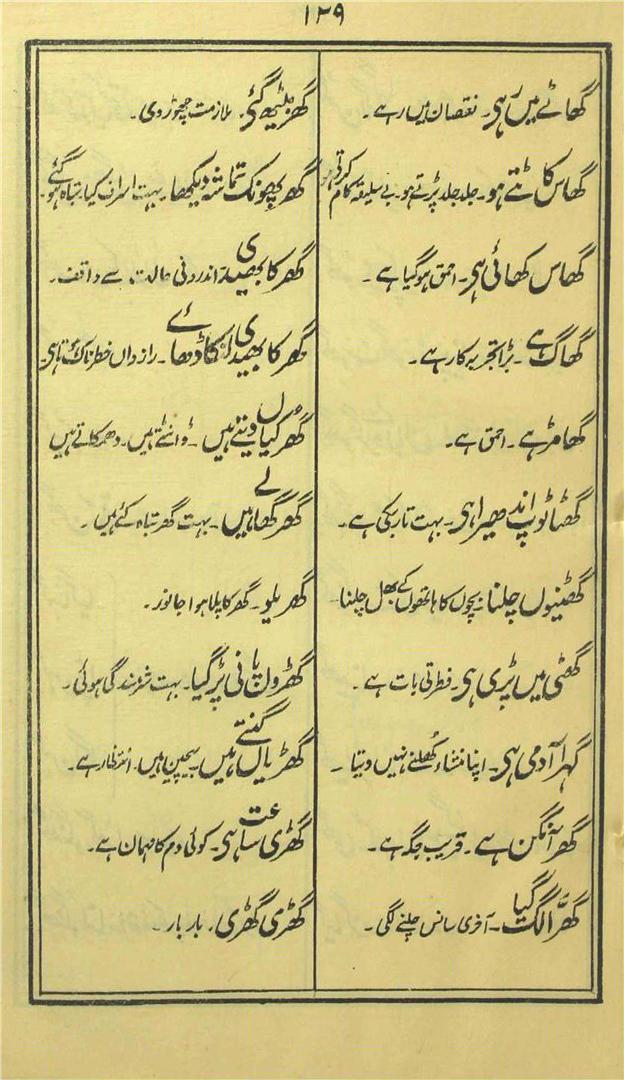 ۱۲۹
گھاٹے میں رہی۔ نقصان میں رہے۔
گھاس کاٹتے ہو۔ جلد جلد پڑتے ہو۔ بے سلیقہ کام کرتی ہو
گھاس کھائی ہی۔ احمق ہوگیا ہے۔
گھاگ ہے۔ بڑا تجربہ کار ہے۔
گھامڑ ہے۔ احمق ہے۔
گھٹاٹوپ اندھیرا ہی۔ بہت تاریکی ہے۔
گھٹنیوں چلنا۔ بچوں کا ہاتھوں کے بھل چلنا۔
گھٹی میں پڑی ہی۔ فطرتی بات ہے۔
گہرا آدمی ہی۔ اپنا منشاء کُھلنے نہیں دیتا۔
گھر آنگن ہے۔ قریب جگہ ہے۔
گھرّا لگ گیا۔ آخری سانس چلنے لگی۔
گھر بیٹھ گئی۔ ملازمت چھوڑ دی۔
گھر پھونک تماشہ دیکھا۔ بہت اسراف کیا۔ تباہ ہو گئے۔
گھر کا بھیدی۔ اندرونی حالت سے واقف۔
گھر کا بھیدی لنکا ڈھائے۔ رازداں خطرناک ہوتا ہی۔
گھُرکیاں دیتے ہیں۔ ڈانٹتے ہیں۔ دھمکاتے ہیں
گھر گھالے ہیں۔ بہت گھر تباہ کئے ہیں۔
گھریلو۔ گھر کا پلا ہوا جانور۔
گھڑوں پانی پڑ گیا۔ بہت شرمندگی ہوئی۔
گھڑیاں گنتے ہیں۔ بیچین ہیں۔ انتظار ہے۔
گھڑی ساعت ہی۔ کوئی دم کا مہمان ہے۔
گھڑی گھڑی۔ بار بار۔